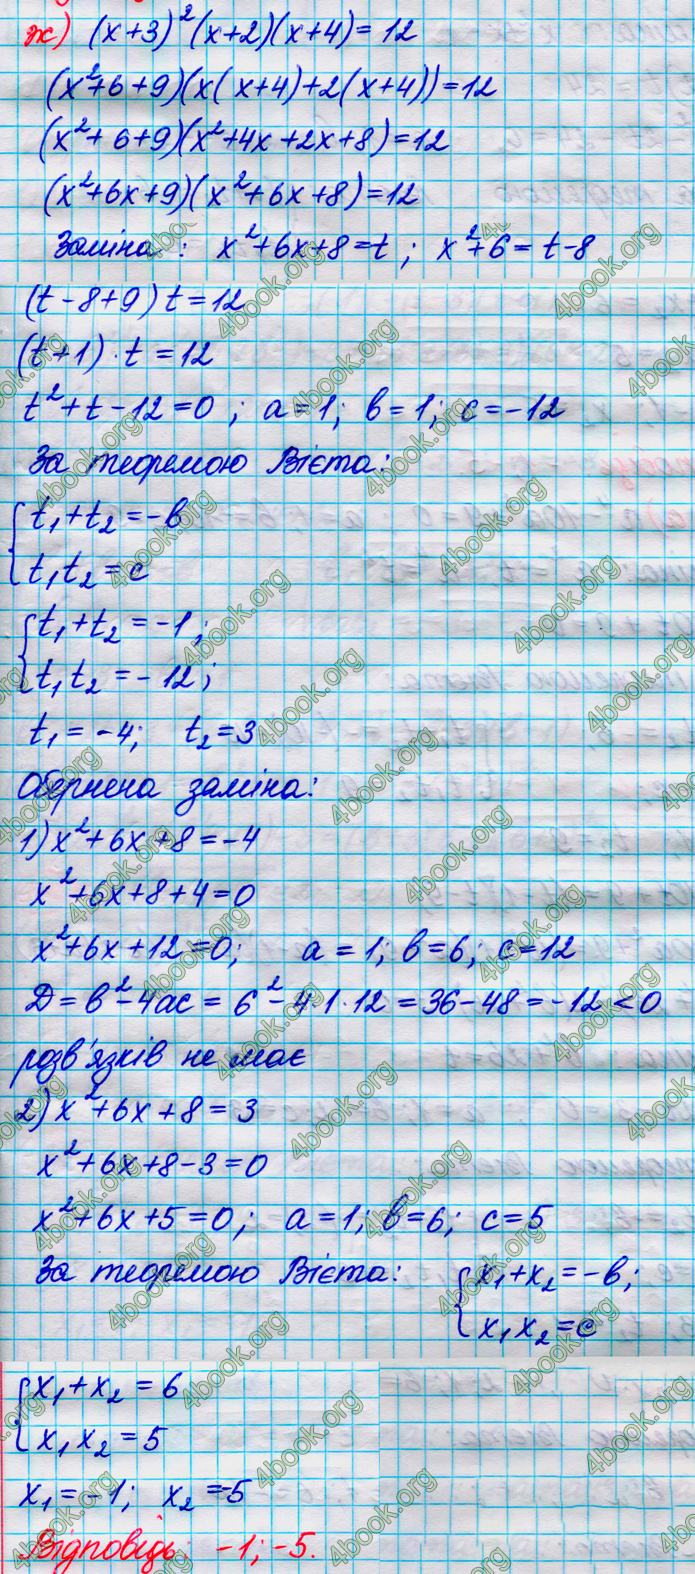 ж) (x+3)²(x+2)(x+4)=12
(x²+6+9)(x(x+4)+2(x+4))=12
(x²+6+9)(x²+4x+2x+8)=12
(x²+6x+9)(x²+6x+8)=12
Заміна: x²+6x+8=t; x²+6=t-8
(t-8+9)t=12
(t+1)·t=12
t²+t-12=0; a=1; b=1; c=-12
За теоремою Вієта:
t₁+t₂=-b
t₁t₂=c
t₁+t₂=-1;
t₁t₂=-12;
t₁=-4; t₂=3
Обернена заміна:
1) x²+6x+8=-4
x²+6x+8+4=0
x²+6x+12=0; a=1; b=6; c=12
Д=b²-4ac=6²-4·1·12=36-48=-12<0
розв'язків не має
2) x²+6x+8=3
x²+6x+8-3=0
x²+6x+5=0; a=1; b=6; c=5
За теоремою Вієта: x₁+x₂=-b;
x₁x₂=c
x₁+x₂=6
x₁x₂=5
x₁=-1; x₂=-5
Відповідь: -1; -5.
4book.org